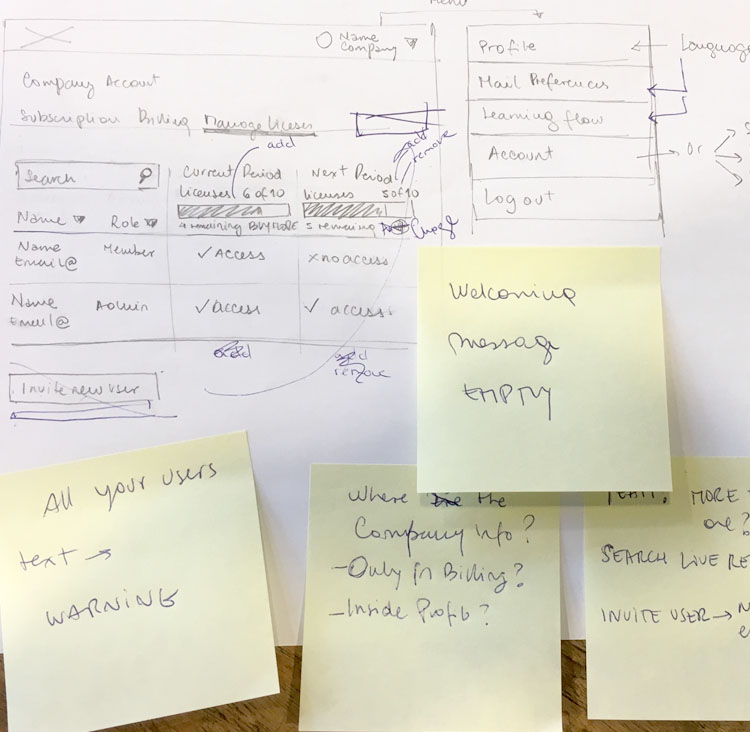 Menu
Name
Company
Company Account
Subscription Billing Manage licenses
add
add
remove
Search
Current Period
Licenses 6 of 10
4 remaining BUY MORE
Next Period
Licenses 5 of 10
5 remaining
Name Role
Name
Email@
Member
✓Access
x no access
Name
Email@
Admin
✓access
✓ access
add
remove
Invite new user
Profile
Language
Mail Preferences
Learning flow
Account
Or
Log out
Welcoming
message
EMPTY
All your users
text →
WARNING
Where the
Company info?
- Only in Billing?
- Inside Profile?
MORE
one?
SEARCH LIVE RE
INVITE USER →